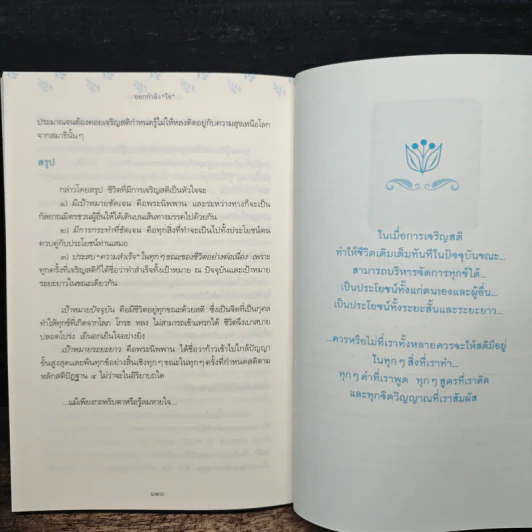 ออกกำลัง "ใจ"
ประมาณจนต้องคอยเจริญสติกำหนดรู้ไม่ให้หลงติดอยู่กับความสุขเหนือโลก
จากสมาธินั้นๆ
สรุป
กล่าวโดยสรุป ชีวิตที่มีการเจริญสติเป็นหัวใจจะ
๑) มีเป้าหมายชัดเจน คือพระนิพพาน และระหว่างทางก็จะเป็น
กัลยาณมิตรชวนผู้อื่นให้ได้เดินบนเส้นทางมรรคไปด้วยกัน
๒) มีการกระทำที่ชัดเจน คือทุกสิ่งที่ทำจะเป็นไปทั้งประโยชน์ตน
ควบคู่กับประโยชน์ท่านเสมอ
๓) ประสบ "ความสำเร็จ" ในทุกๆ ขณะของชีวิตอย่างต่อเนื่อง เพราะ
ทุกครั้งที่เจริญสติก็ได้ชื่อว่าทำสำเร็จทั้งเป้าหมาย ณ ปัจจุบันและเป้าหมาย
ระยะยาวในขณะเดียวกัน
เป้าหมายปัจจุบัน คือมีชีวิตอยู่ทุกขณะด้วยสติ ซึ่งเป็นจิตที่เป็นกุศล
ทำให้ทุกข์ที่เกิดจากโลภ โกรธ หลง ไม่สามารถเข้าแทรกได้ ชีวิตจึงเบาสบาย
ปลอดโปร่ง เยือกเย็นใจอย่างยิ่ง
เป้าหมายระยะยาว คือพระนิพพาน ได้ชื่อว่าก้าวเข้าไปใกล้ปัญญา
ขั้นสูงสุดและพ้นทุกข์อย่างสิ้นเชิงทุกๆ ขณะในทุกๆ ครั้งที่กำหนดสติตาม
หลักสติปัฏฐาน ๔ ไม่ว่าจะในอิริยาบถใด
...แม้เพียงกะพริบตาหรือรู้ลมหายใจ...
ในเมื่อการเจริญสติ
ทำให้ชีวิตเติมเต็มทันทีในปัจจุบันขณะ...
สามารถบริหารจัดการทุกข์ได้...
เป็นประโยชน์ทั้งแก่ตนเองและผู้อื่น...
เป็นประโยชน์ทั้งระยะสั้นและระยะยาว...
...ควรหรือไม่ที่เราทั้งหลายควรจะให้สติมีอยู่
ในทุกๆ สิ่งที่เราทำ...
ทุกๆ คำที่เราพูด ทุกๆ สูตรที่เราคิด
และทุกจิตวิญญาณที่เราสัมผัส